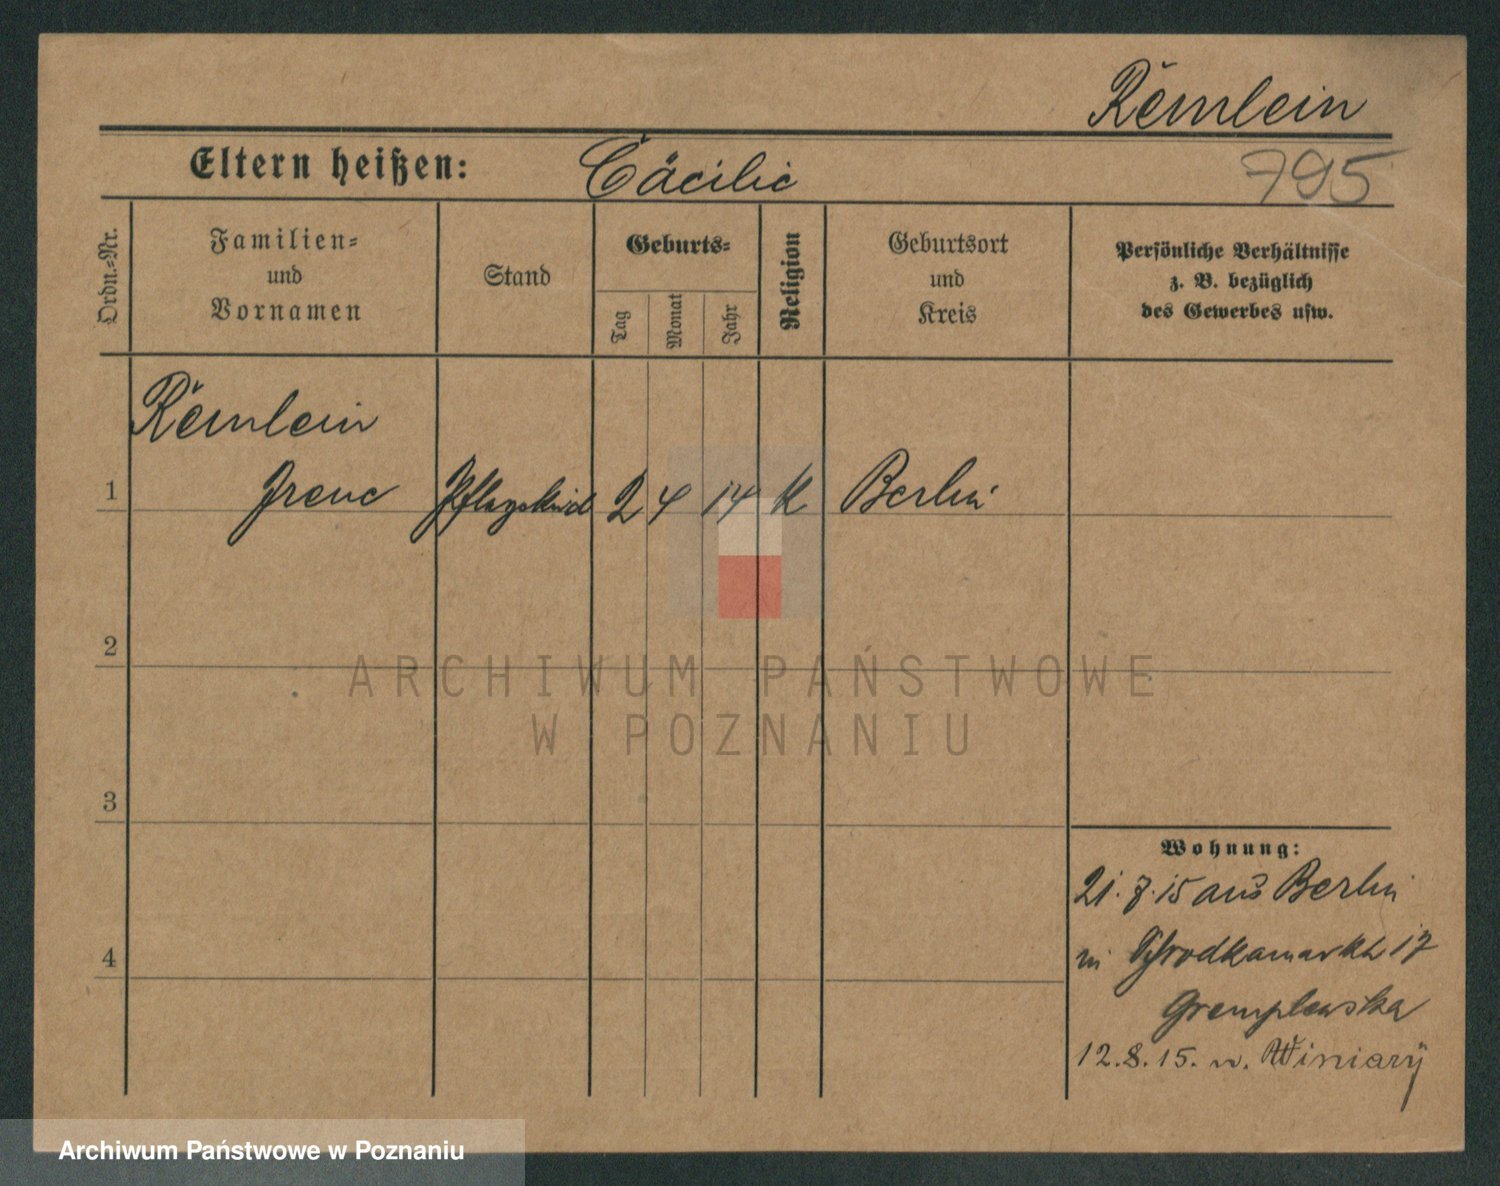 Remlein
Eltern heißen: Cäcilie
795
Ordn.-Nr.
Familien-
und
Vornamen
Stand
Geburts-
Tag
Monat
Jahr
Religion
Geburtsort
und
Kreis
Persönliche Verhältnisse
z. B. bezüglich
des Gewerbes usw.
Remlein
1 Irene Pflegekind 2 4 14 K Berlin
2
3
4
Wohnung:
21. 7. 15 aus Berlin
Schrodkamarkt 17
Gremplewska
12. 8. 15. n. Winiary
ARCHIWUM PAŃSTWOWE
W POZNANIU
Archiwum Państwowe w Poznaniu